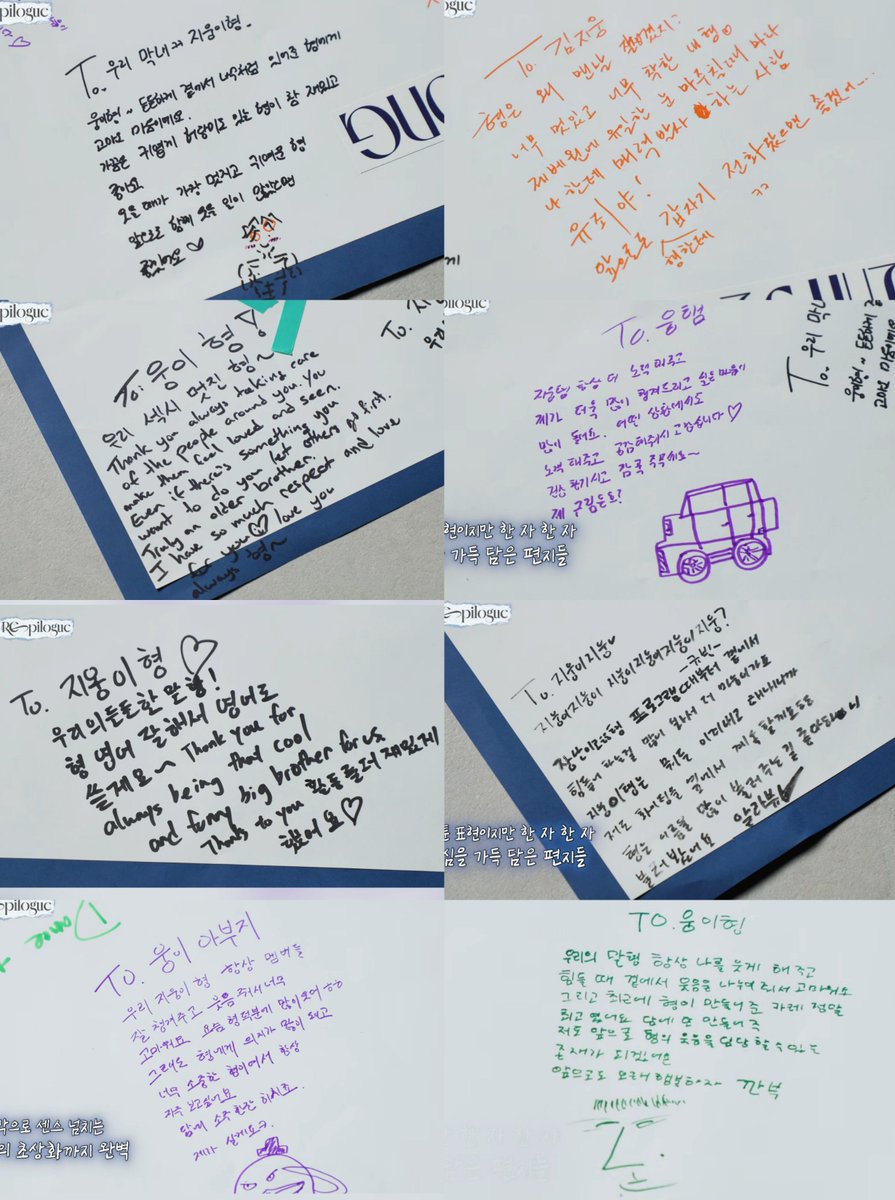 pilogue
To. 우리 막내 지웅이형.
웅이형~ 든든하게 곁에서 나무처럼 있어준 형에게
고마운 마음이에요.
가끔은 귀엽게 허당미도 있는 형이 참 재밌고
좋아요
웃을 때가 가장 멋지고 귀여운 형
앞으로 함께 웃을 일이 많았으면
좋겠어요 ♡
ONG
pilogue
To. 김지웅
형은 왜 맨날 잘생겼지?
너무 멋있고 너무 착한 내 형
제베원에 유일한 눈 마주칠 때마다
나한테 매력발사 하는 사람
유죄야!
앞으로도 갑자기 전화왔으면 좋겠어...
형한테
ㅋㅋ
pilogue
To: 웅이 형
우리 섹시 멋진 형~
Thank you always taking care
of the people around you. You
make them feel loved and seen.
Even if there's something you
want to do you let others go first.
Truly an older brother.
I have so much respect and love
for you♡ love you
always 형~
To.
pilogue
To. 웅햄
지웅형 항상 더 노력해주고
제가 더욱 많이 챙겨드리고 싶은 마음이
많이 들어요. 어떤 상황에서도
노력해주고 공감해줘서 고맙습니다♡
건강 챙기시고 잠 푹 주무세요~
제 그림은요?
To. 우리 막내
현이지만 한 자 한 자
가득 담은 편지들
RE-pilogue
To. 지웅이형 ♡
우리의 든든한 맏형!
형 영어 잘해서 영어로
쓸게요~ Thank you for
always being that cool
and funny big brother for us
Thanks to you 활동들 더 재밌게
했어요♡
pilogue
To. 지웅이지웅♥
지웅이지웅이 지웅이지웅이지웅이지웅?
-규빈-
프로그램때부터 곁에서
힘들어 하는걸 많이 봐서 더 마음이 가요
지웅이형은 뭐든 이겨내고 해내니까
저도 화이팅을 옆에서 제일 할게요
형은 이름을 많이 불러주는걸 좋아하니
불러봤어요 알라뷰
툰 표현이지만 한 자 한 자
심을 가득 담은 편지들
pilogue
Done
TO. 웅이 아부지
우리 지웅이 형 항상 멤버들
잘 챙겨주고 웃음 줘서 너무
고마워요 요즘 형 덕분에 많이 웃어 ㅎㅎ
그래도 형에게 의지가 많이 돼고
너무 소중한 형이여서 항상
자주 보고싶어요
담에 소주 한잔 하시죠.
제가 살게요ㅋ
막으로 센스 넘치는
의 초상화까지 완벽
TO. 웅이형
우리의 맏형 항상 나를 웃게 해주고
힘들 때 곁에서 웃음을 나누어 줘서 고마워요
그리고 최근에 형이 만들어준 카레 정말
최고였어요 담에 또 만들어줘
저도 앞으로 형의 웃음을 담당할 수 있는
존재가 되겠어요
앞으로도 오래 행복하자 깐부